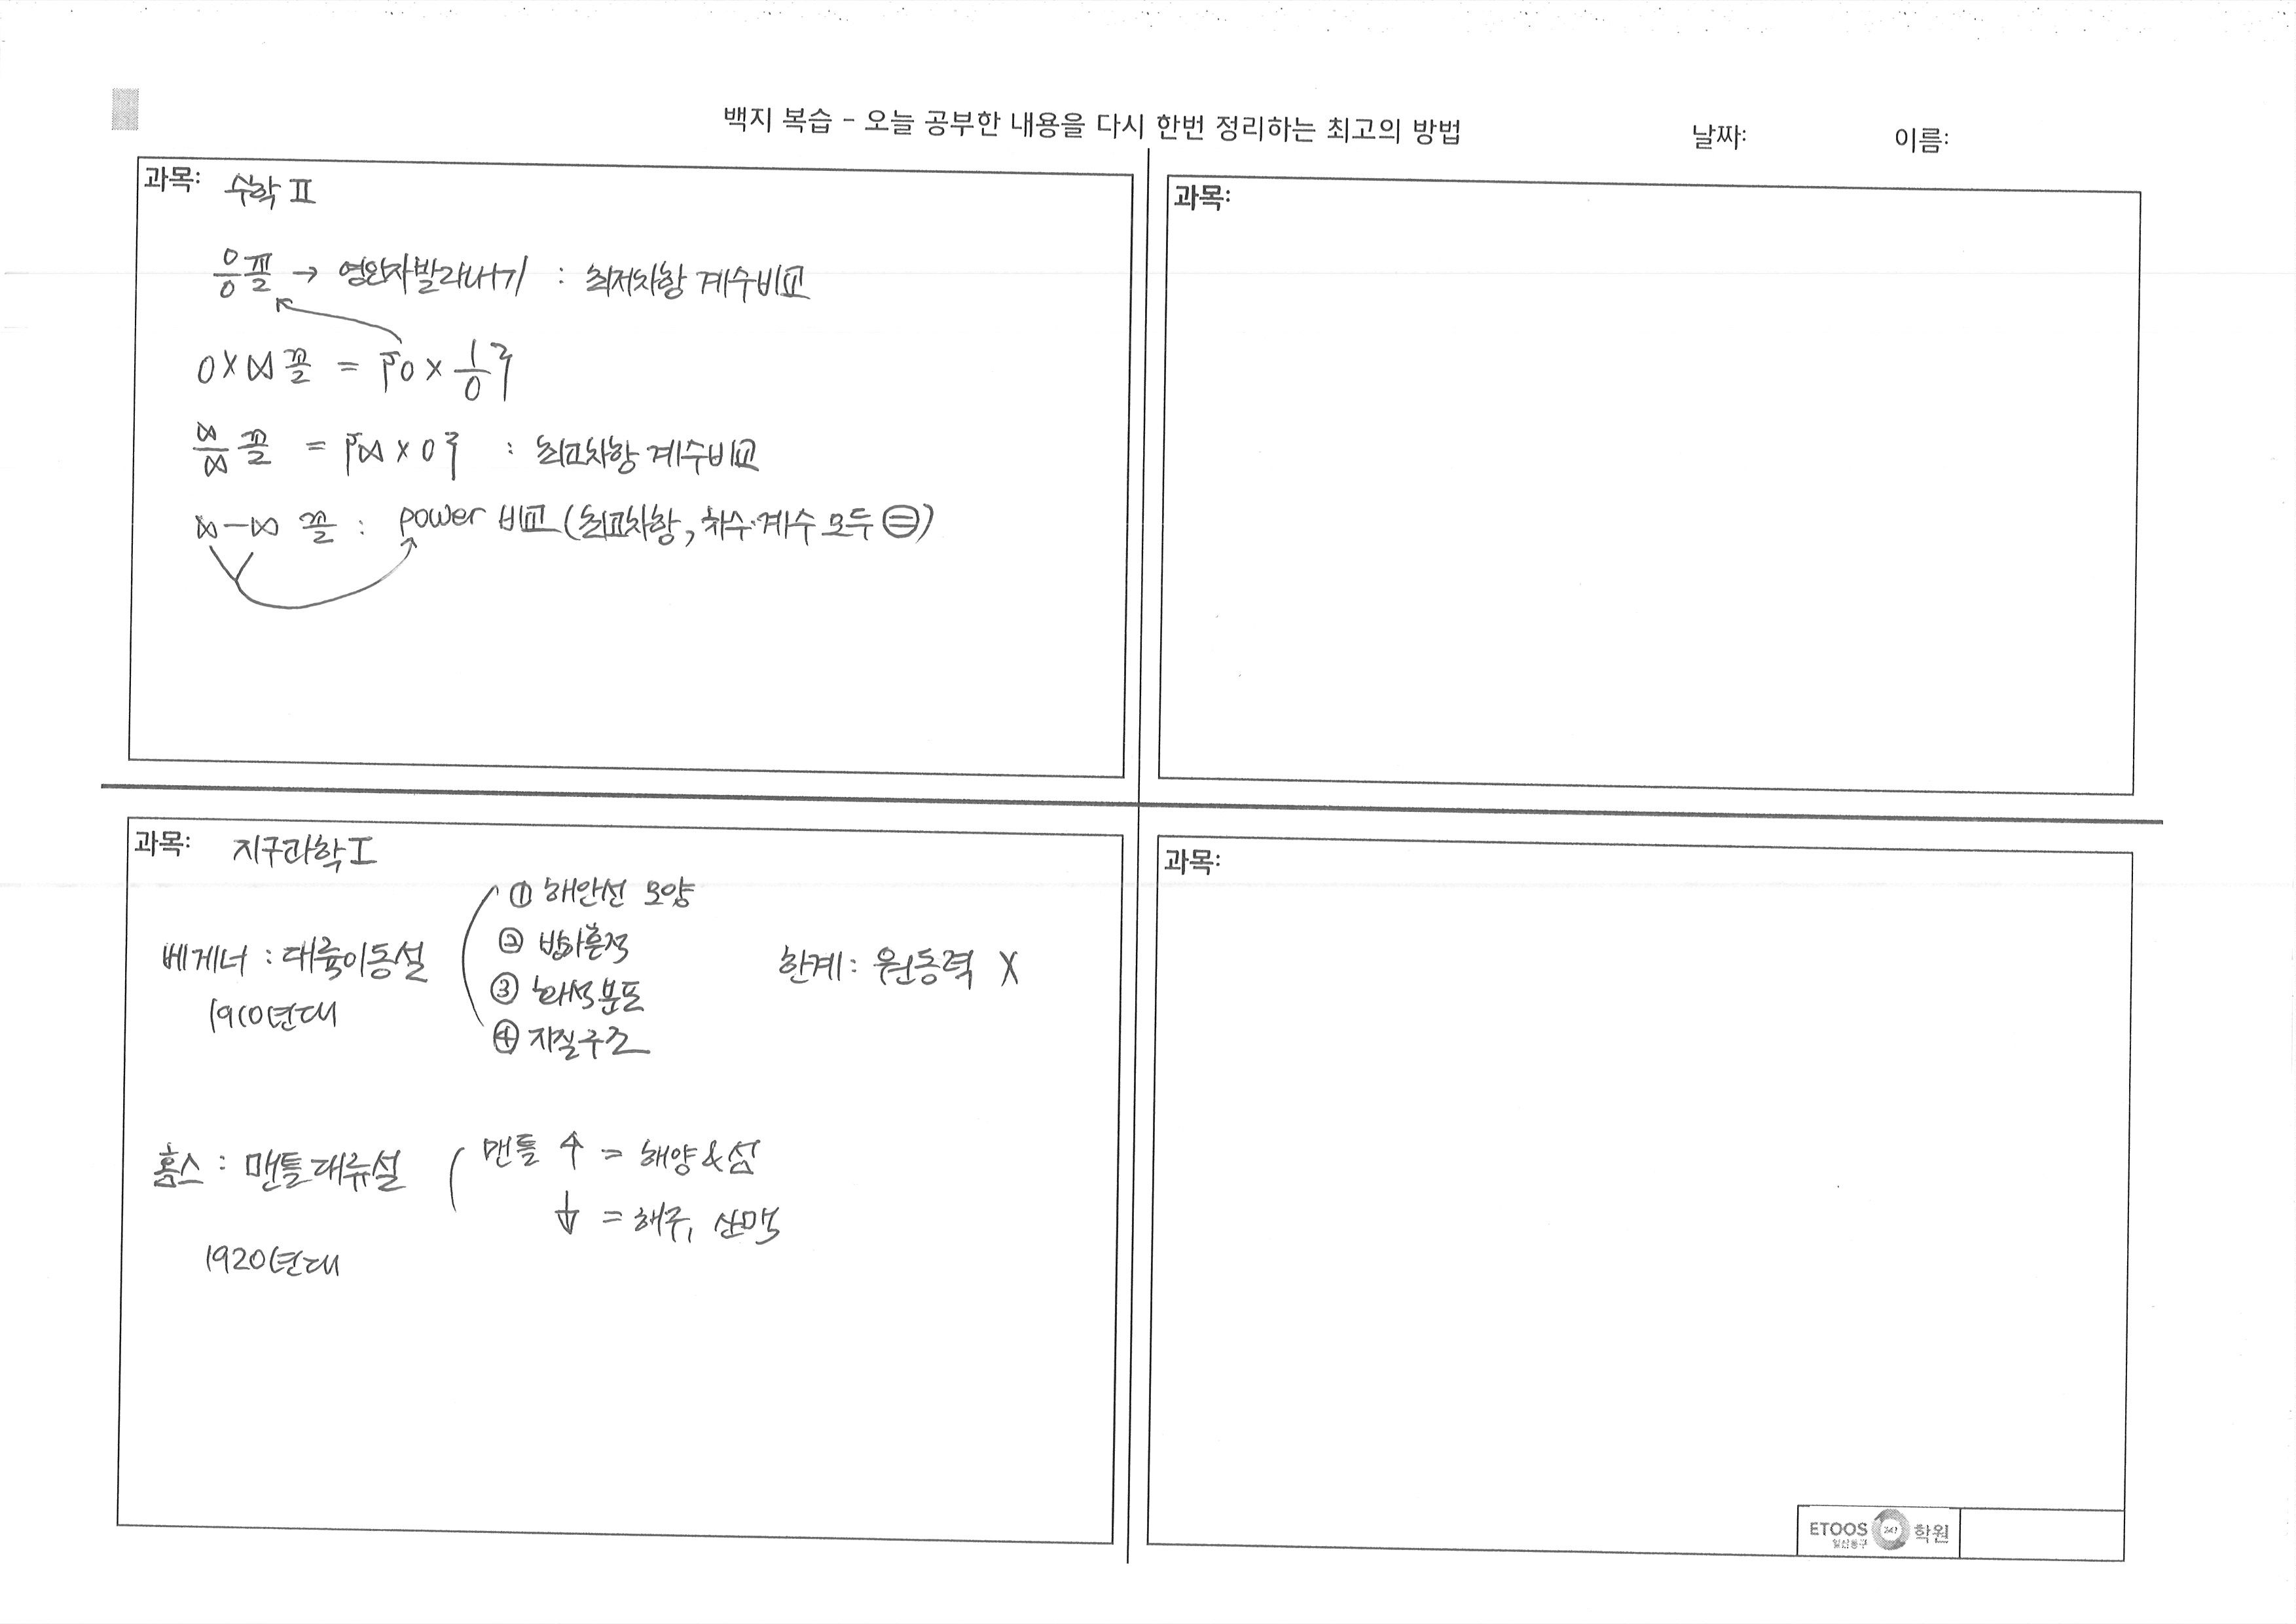 백지 복습 - 오늘 공부한 내용을 다시 한번 정리하는 최고의 방법
날짜: 이름:
과목: 수학 II
0/0 꼴 → 영인자발라내기 : 최저차항 계수비교
0×∞ 꼴 = 『0 × 1/0』
∞/∞ 꼴 = 『∞ × 0』 : 최고차항 계수비교
∞-∞ 꼴 : power 비교 (최고차항, 차수·계수 모두 ⊜)
과목:
과목: 지구과학 I
베게너 : 대륙이동설
1910년대
① 해안선 모양
② 빙하흔적
③ 화석분포
④ 지질구조
한계: 원동력 X
홈스 : 맨틀대류설
1920년대
맨틀 ↑ = 해양&섬
↓ = 해구, 산맥
과목:
ETOOS 247 학원
일산동구